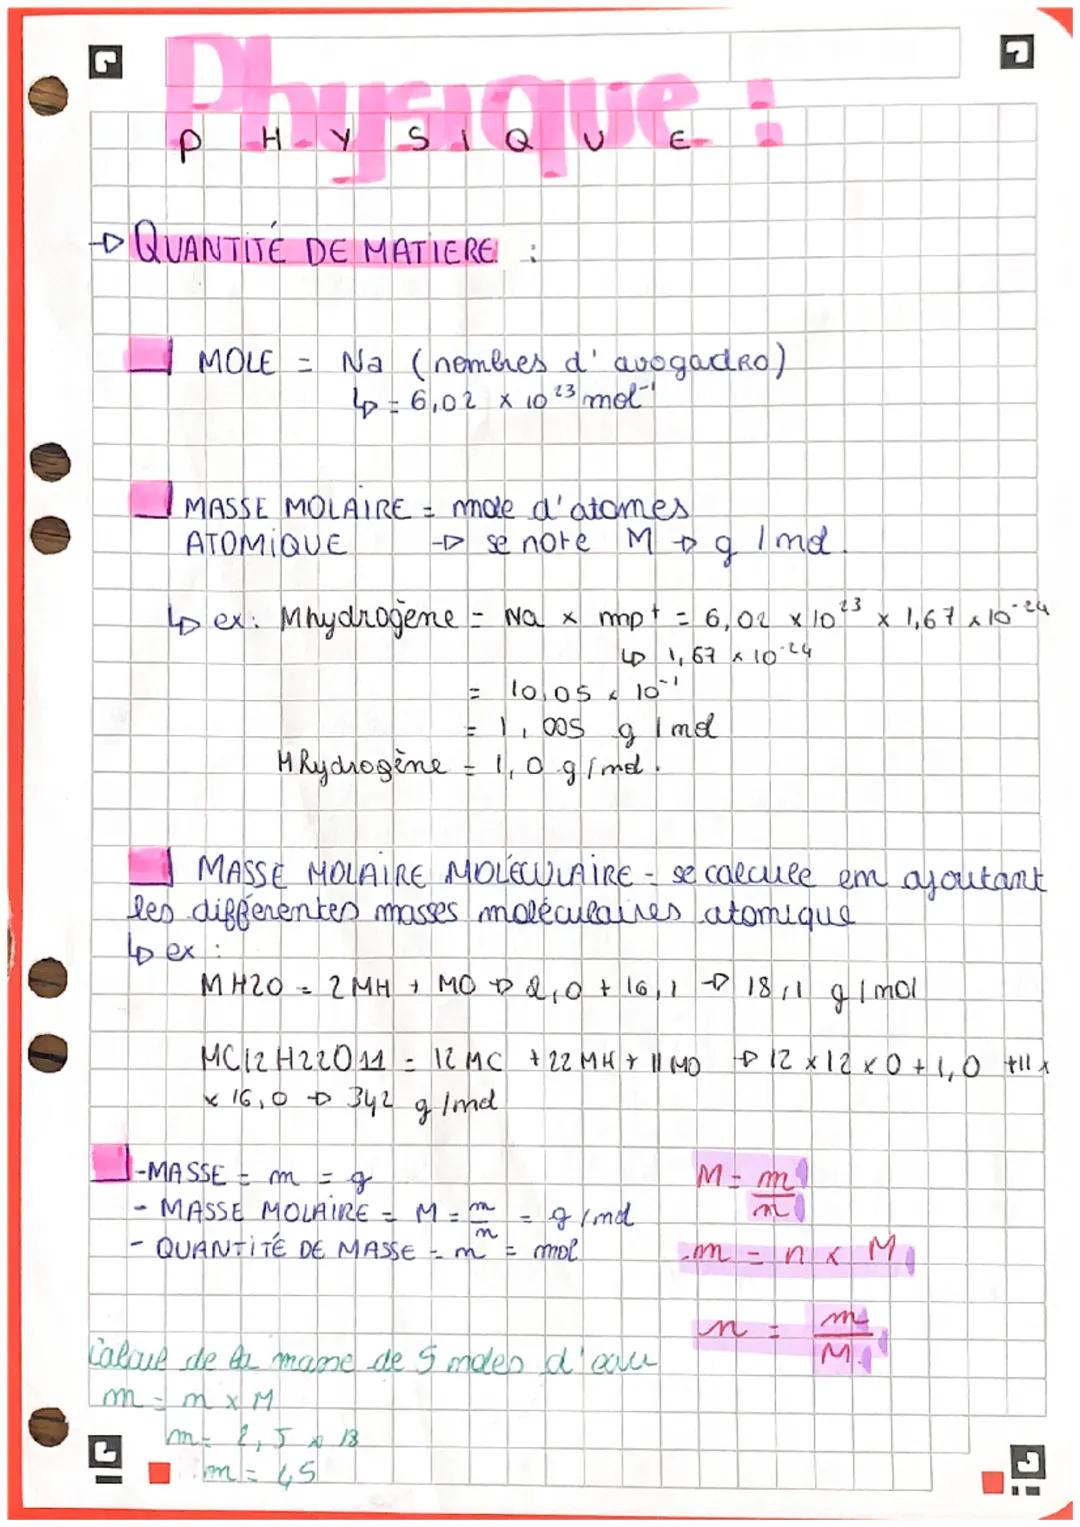 Physique :
P H Y S I Q U E
→ QUANTITÉ DE MATIERE :
MOLE = Na (nombres d'avogadro)
↳ = 6,02 x 10²³ mol⁻¹
MASSE MOLAIRE = mole d'atomes
ATOMIQUE → se note M → g/mol.
↳ ex: Mhydrogène = Na x mp+ = 6,02 x 10²³ x 1,67 x 10⁻²⁴
↳ 1,67 x 10⁻²⁴
= 10,05 x 10⁻¹
= 1,005 g/mol
MRydrogène = 1,0 g/mol.
MASSE MOLAIRE MOLÉCULAIRE - se calcule en ajoutant
les différentes masses moléculaires atomique
↳ ex :
MH2O = 2MH + MO → 2,0 + 16,1 → 18,1 g/mol
MC12H22O11 = 12MC + 22MH + 11MO → 12 x 12 x 0 + 1,0 + 11 x
x 16,0 → 342 g/mol
-MASSE = m = g
- MASSE MOLAIRE = M = m/n = g/mol
- QUANTITÉ DE MASSE - n = mol
M = m/n
m = n x M
n = m/M
Calcul de la masse de 5 moles d'eau
m = n x M
m = 2,5 x 18
m = 45